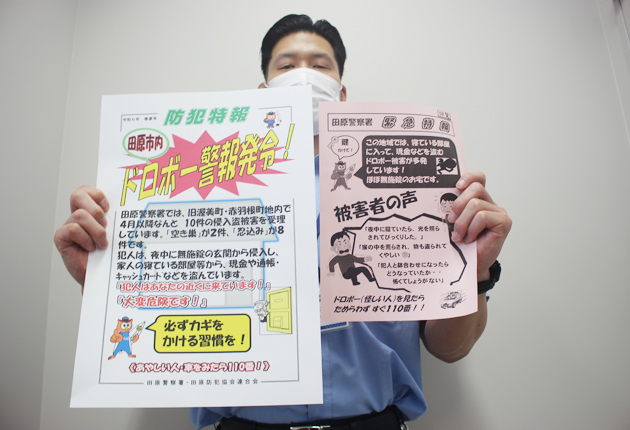 防犯特報
田原市内
ドロボー警報発令！
田原警察署では、旧渥美町・赤羽根町地内で
4月以降なんと 10件の侵入盗被害を受理
しています。「空き巣」が2件、「忍込み」が8
件です。
犯人は、夜中に無施錠の玄関から侵入し、
家人の寝ている部屋等から、現金や通帳・
キャッシュカードなどを盗んでいます。
「犯人はあなたの近くに来ています！」
「大変危険です！」
必ずカギを
かける習慣を！
《あやしい人・車をみたら110番！》
田原警察署・田原防犯協会連合会
田原警察署
緊急特報
鍵
かけて！
この地域では、寝ている部屋
に入って、現金などを盗む
ドロボー被害が多発
しています！
ほぼ無施錠のお宅です。
被害者の声
「夜中に寝ていたら、光を照ら
されてびっくりした。」
「家の中を荒らされ、物も盗られて
くやしい」
「犯人と鉢合わせになったら
どうなっていたか・・
怖くてしょうがない」
ドロボー（怪しい人）を見たら
ためらわず すぐ110番！！